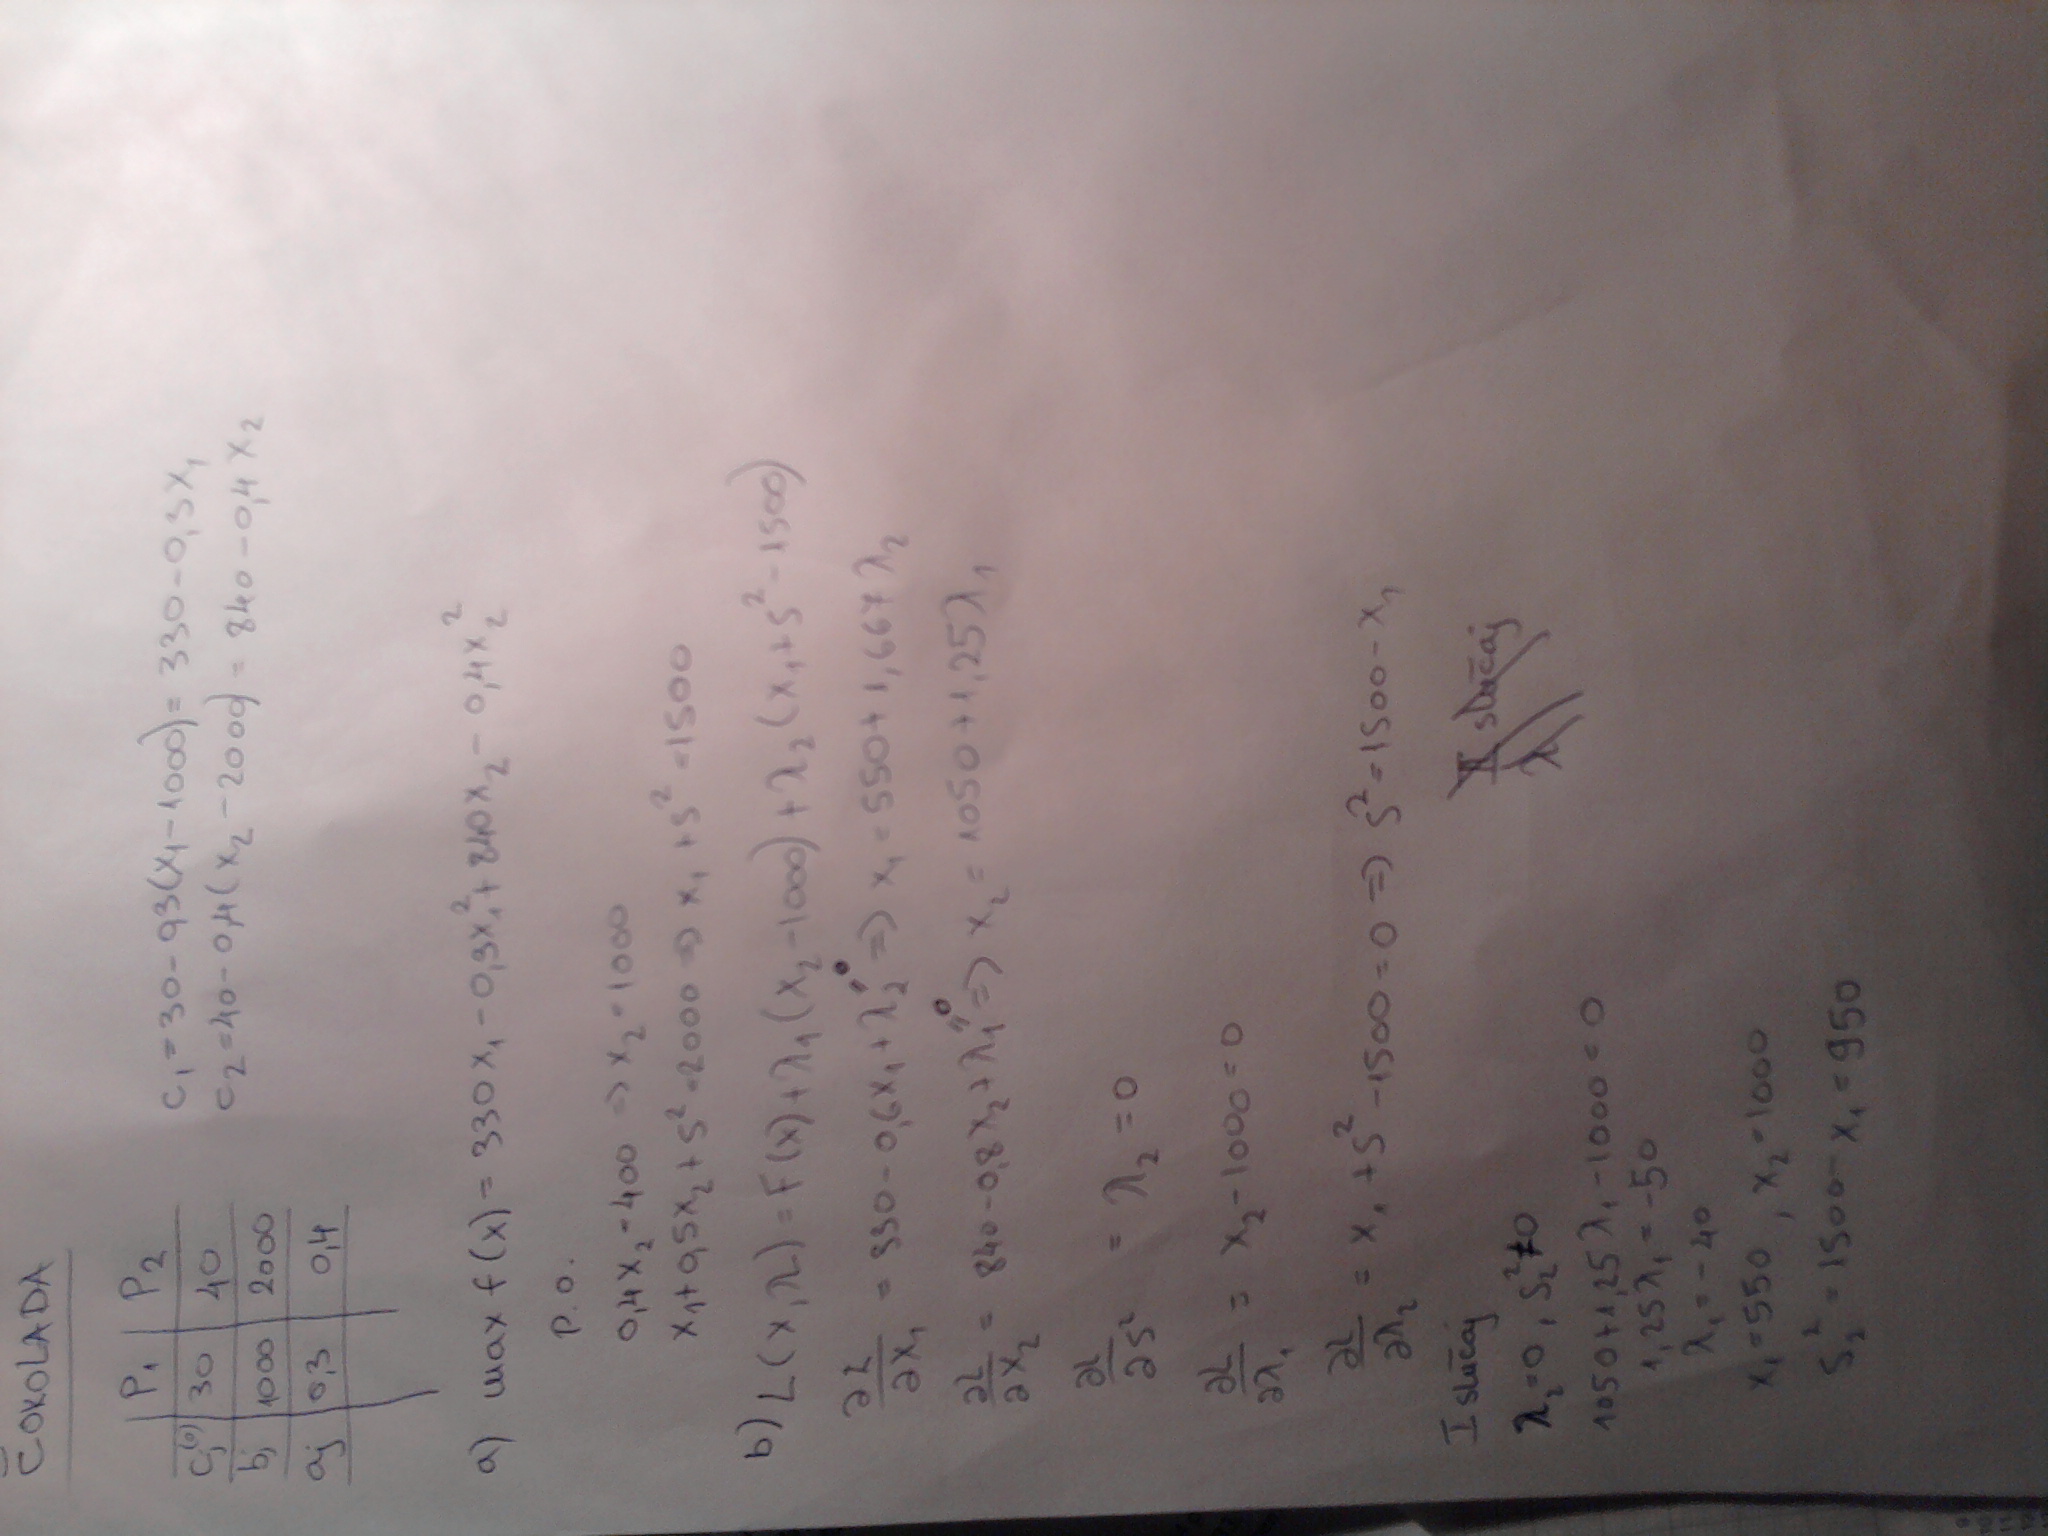 ČOKOLADA
P1 P2
cj(0) 30 40
bj 1000 2000
aj 0,3 0,4
c1 = 30 - 0,3(x1 - 1000) = 330 - 0,3x1
c2 = 40 - 0,4(x2 - 2000) = 840 - 0,4x2
a) max f(x) = 330x1 - 0,3x1² + 840x2 - 0,4x2²
P.O.
0,4x2 = 400 => x2 = 1000
x1 + 0,5x2 + S² = 2000 => x1 + S² = 1500
b) L(x,λ) = F(x) + λ1(x2 - 1000) + λ2(x1 + S² - 1500)
∂L/∂x1 = 330 - 0,6x1 + λ2 = 0 => x1 = 550 + 1,667λ2
∂L/∂x2 = 840 - 0,8x2 + λ1 = 0 => x2 = 1050 + 1,25λ1
∂L/∂S² = λ2 = 0
∂L/∂λ1 = x2 - 1000 = 0
∂L/∂λ2 = x1 + S² - 1500 = 0 => S² = 1500 - x1
I slučaj
II slučaj
λ
λ2 = 0, S2² ≠ 0
1050 + 1,25λ1 - 1000 = 0
1,25λ1 = -50
λ1 = -40
x1 = 550, x2 = 1000
S2² = 1500 - x1 = 950